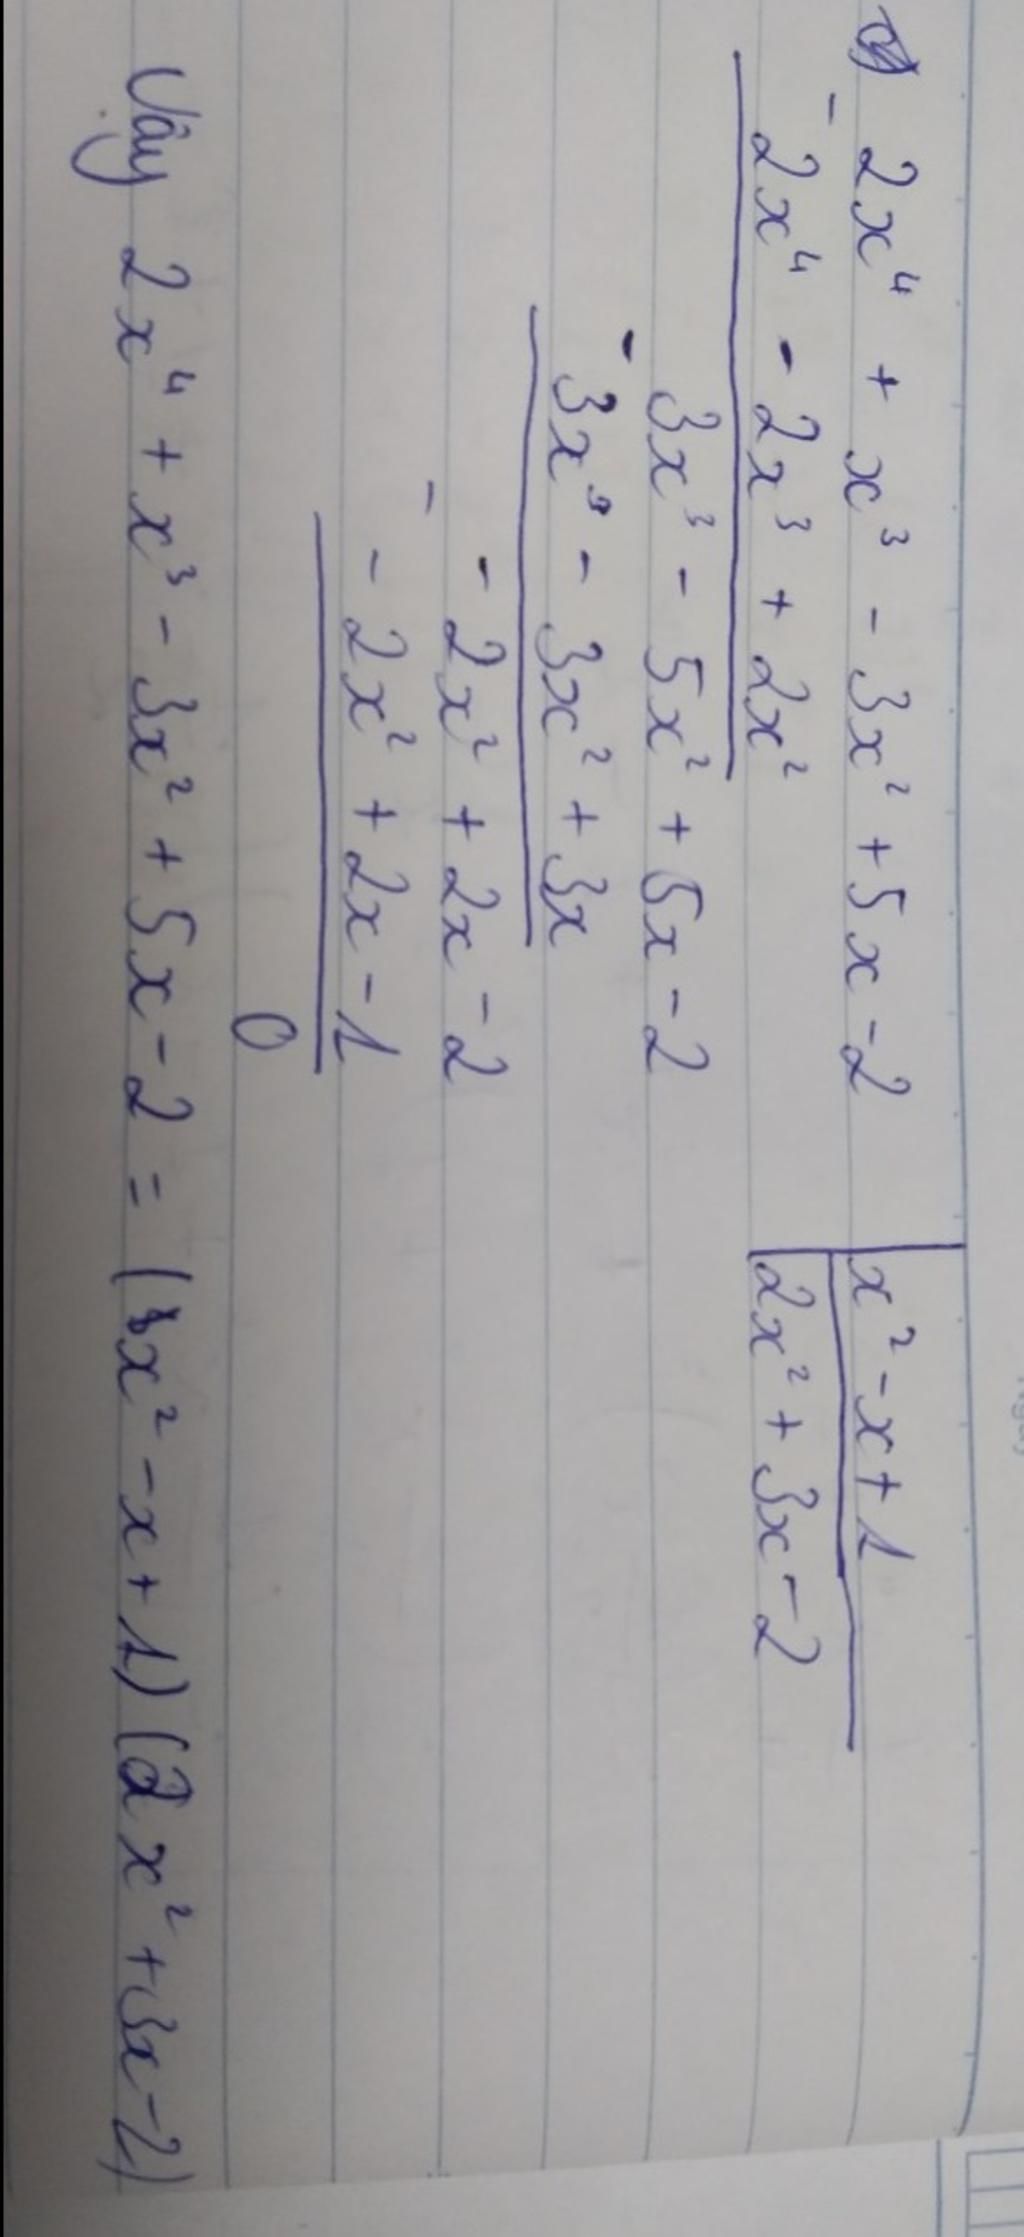 c) 2x⁴ + x³ - 3x² + 5x - 2 | x² - x + 1
- 2x⁴ - 2x³ + 2x² | 2x² + 3x - 2
3x³ - 5x² + 5x - 2
- 3x³ - 3x² + 3x
- 2x² + 2x - 2
- - 2x² + 2x - 1
0
Vậy 2x⁴ + x³ - 3x² + 5x - 2 = (x² - x + 1)(2x² + 3x - 2)